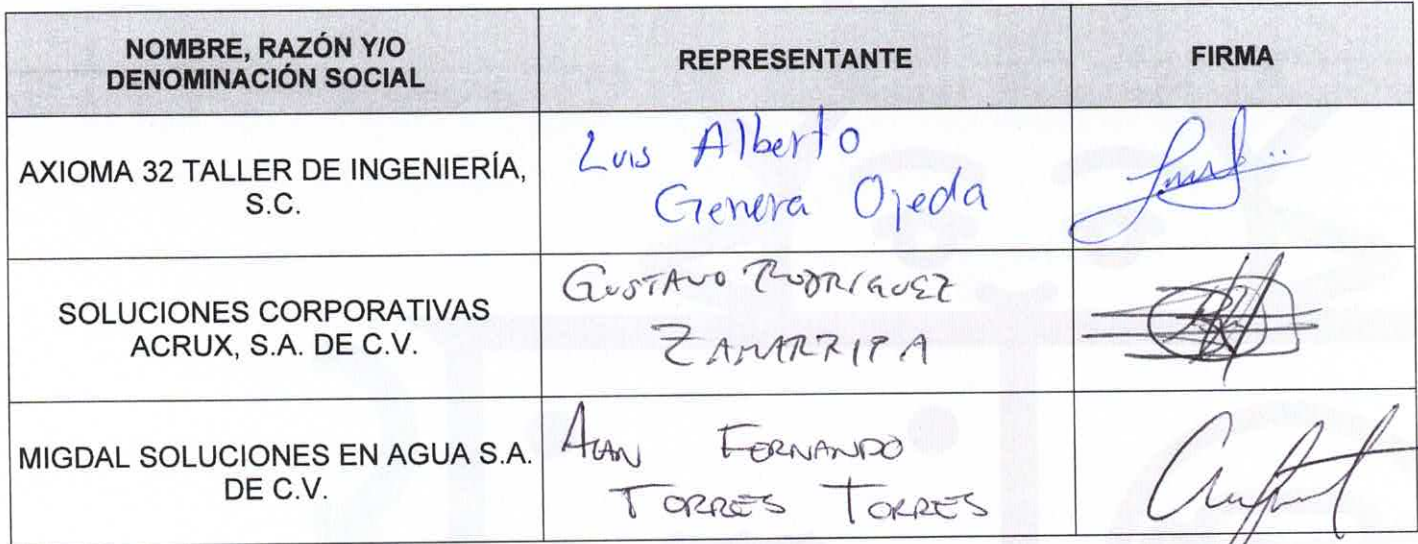 NOMBRE, RAZÓN Y/O
DENOMINACIÓN SOCIAL
REPRESENTANTE
FIRMA
AXIOMA 32 TALLER DE INGENIERÍA,
S.C.
Luis Alberto
Genera Ojeda
SOLUCIONES CORPORATIVAS
ACRUX, S.A. DE C.V.
GUSTAVO RODRIGUEZ
ZAMARRIPA
MIGDAL SOLUCIONES EN AGUA S.A.
DE C.V.
ALAN FERNANDO
TORRES TORRES